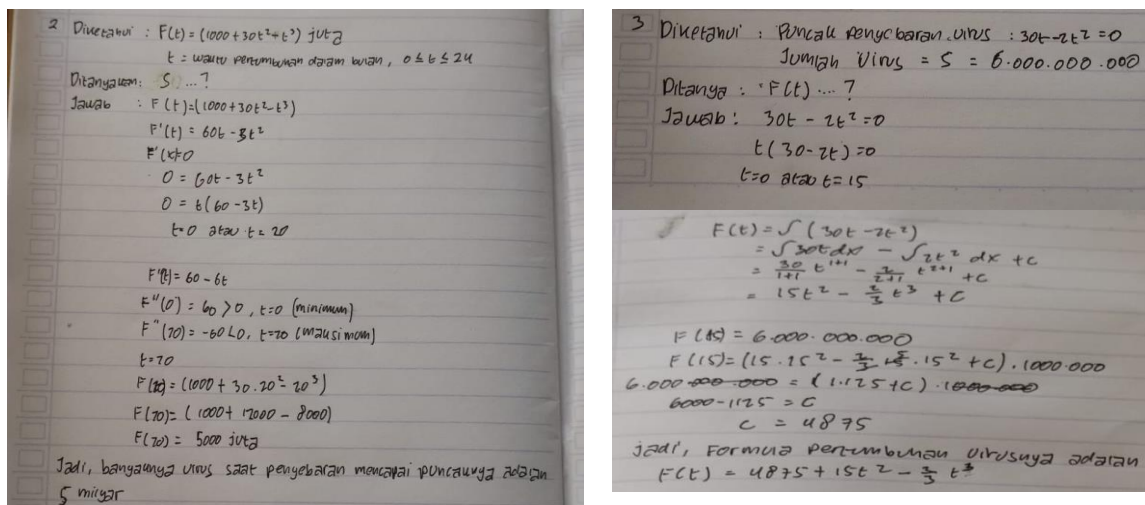 2 Diketahui : F(t) = (1000+30t²+t³) juta
t = waktu pertumbuhan dalam bulan, 0 ≤ t ≤ 24
Ditanyakan: S ...?
Jawab : F(t)=(1000+30t²-t³)
F'(t) = 60t - 3t²
F'(x)=0
0 = 60t - 3t²
0 = t(60-3t)
t=0 atau t=20
F"(t) = 60 - 6t
F"(0) = 60 > 0, t=0 (minimum)
F"(20) = -60 < 0, t=20 (maksimum)
t=20
F(20) = (1000 + 30.20² - 20³)
F(20) = (1000 + 12000 - 8000)
F(20) = 5000 juta
Jadi, banyaknya virus saat penyebaran mencapai puncaknya adalah
5 milyar
3 Diketahui : Puncak penyebaran virus : 30t-2t² = 0
Jumlah Virus = S = 6.000.000.000
Ditanya : F(t) ...?
Jawab : 30t - 2t² = 0
t(30-2t) = 0
t=0 atau t=15
F(t) = ∫(30t - 2t²)
= ∫30t dx - ∫2t² dx + c
= 30/1+1 t¹⁺¹ - 2/2+1 t²⁺¹ + c
= 15t² - 2/3 t³ + c
F(15) = 6.000.000.000
F(15) = (15.15² - 2/3 .15² + c).1000.000
6.000.000.000 = (1.125+c).1000.000
6000-1125 = c
c = 4875
jadi, Formula pertumbuhan virusnya adalah
F(t) = 4875 + 15t² - 2/3 t³